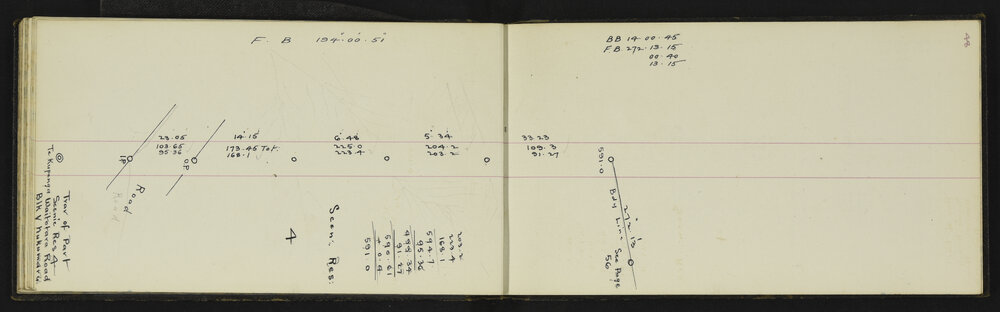 F. B 194° 00' 51"
BB 14 - 00 - 45
F.B. 272 - 13 - 15
00 - 40
13 - 15
48
23.05
103.65
95.36
14° 15'
173.45 Tot.
168.1
6° 48'
225.0
223.4
5° 34'
204.2
203.2
33 23
109.3
91.27
IP
OP
Road
Road
591.0
272° 13'
Bdy Line See Page
56
4
Scenic Res:
203.2
223.4
168.1
594.7
95.36
499.34
91.27
590.61
+ 0.4
591.0
Trav of Part
Scenic Res 4
Waitotara Road
Blk V Nukumaru